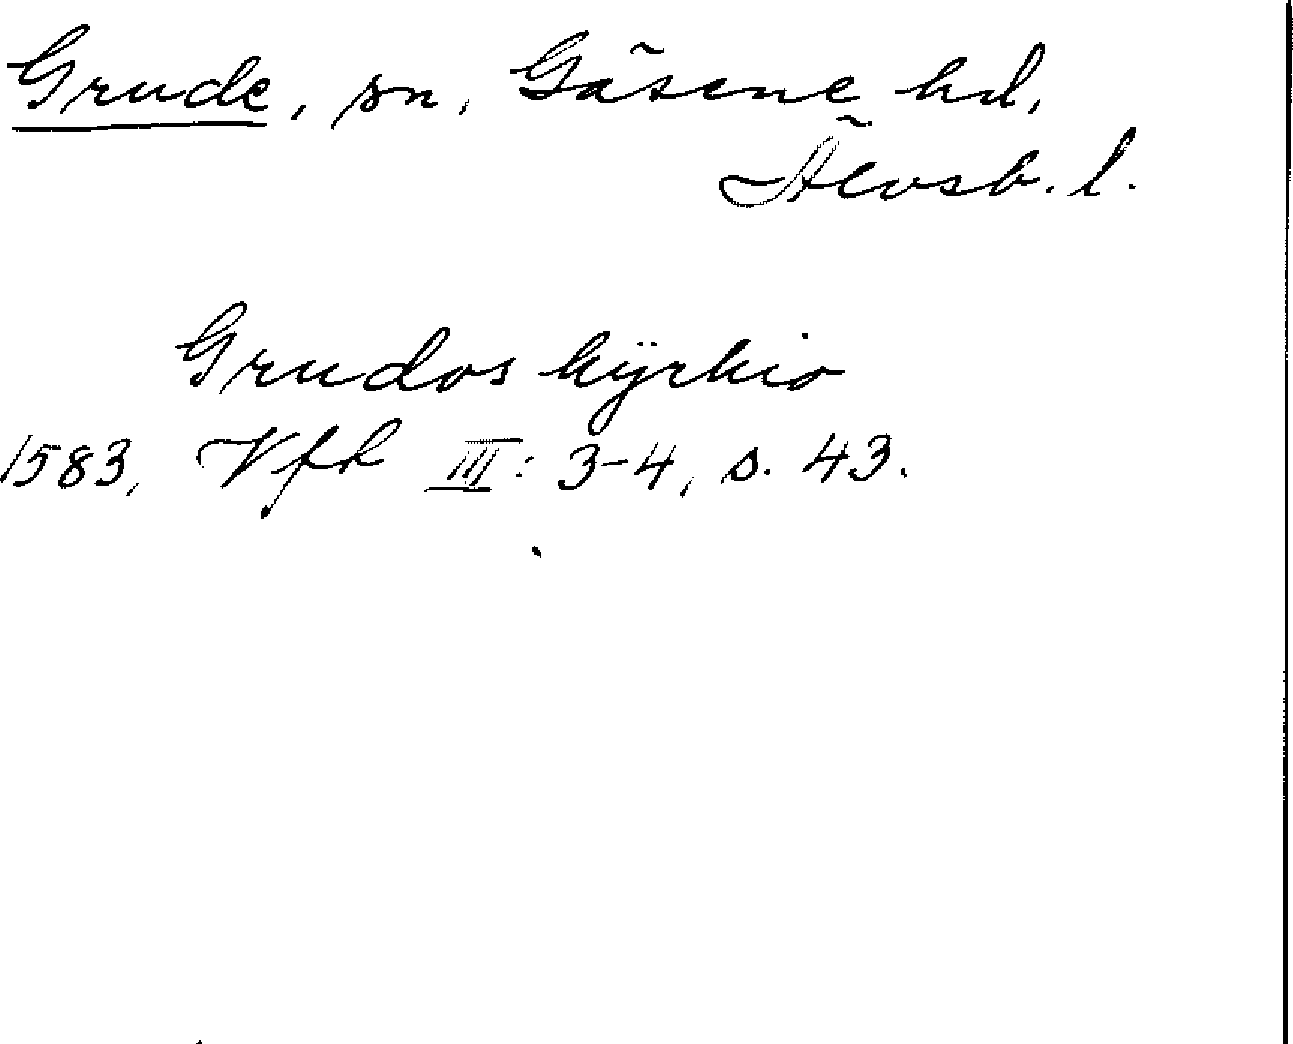 Grude, sn, Gäsene hd,
Älvsb. l.
Grudos kÿrkio
1583, Vfk III: 3-4, s. 43.